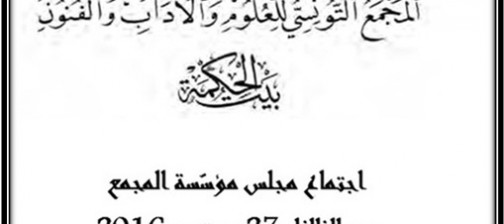 المجمع التونسي للعلوم والآداب والفنون
بيت الحكمة
اجتماع مجلس مؤسّسة المجمع
27 2016